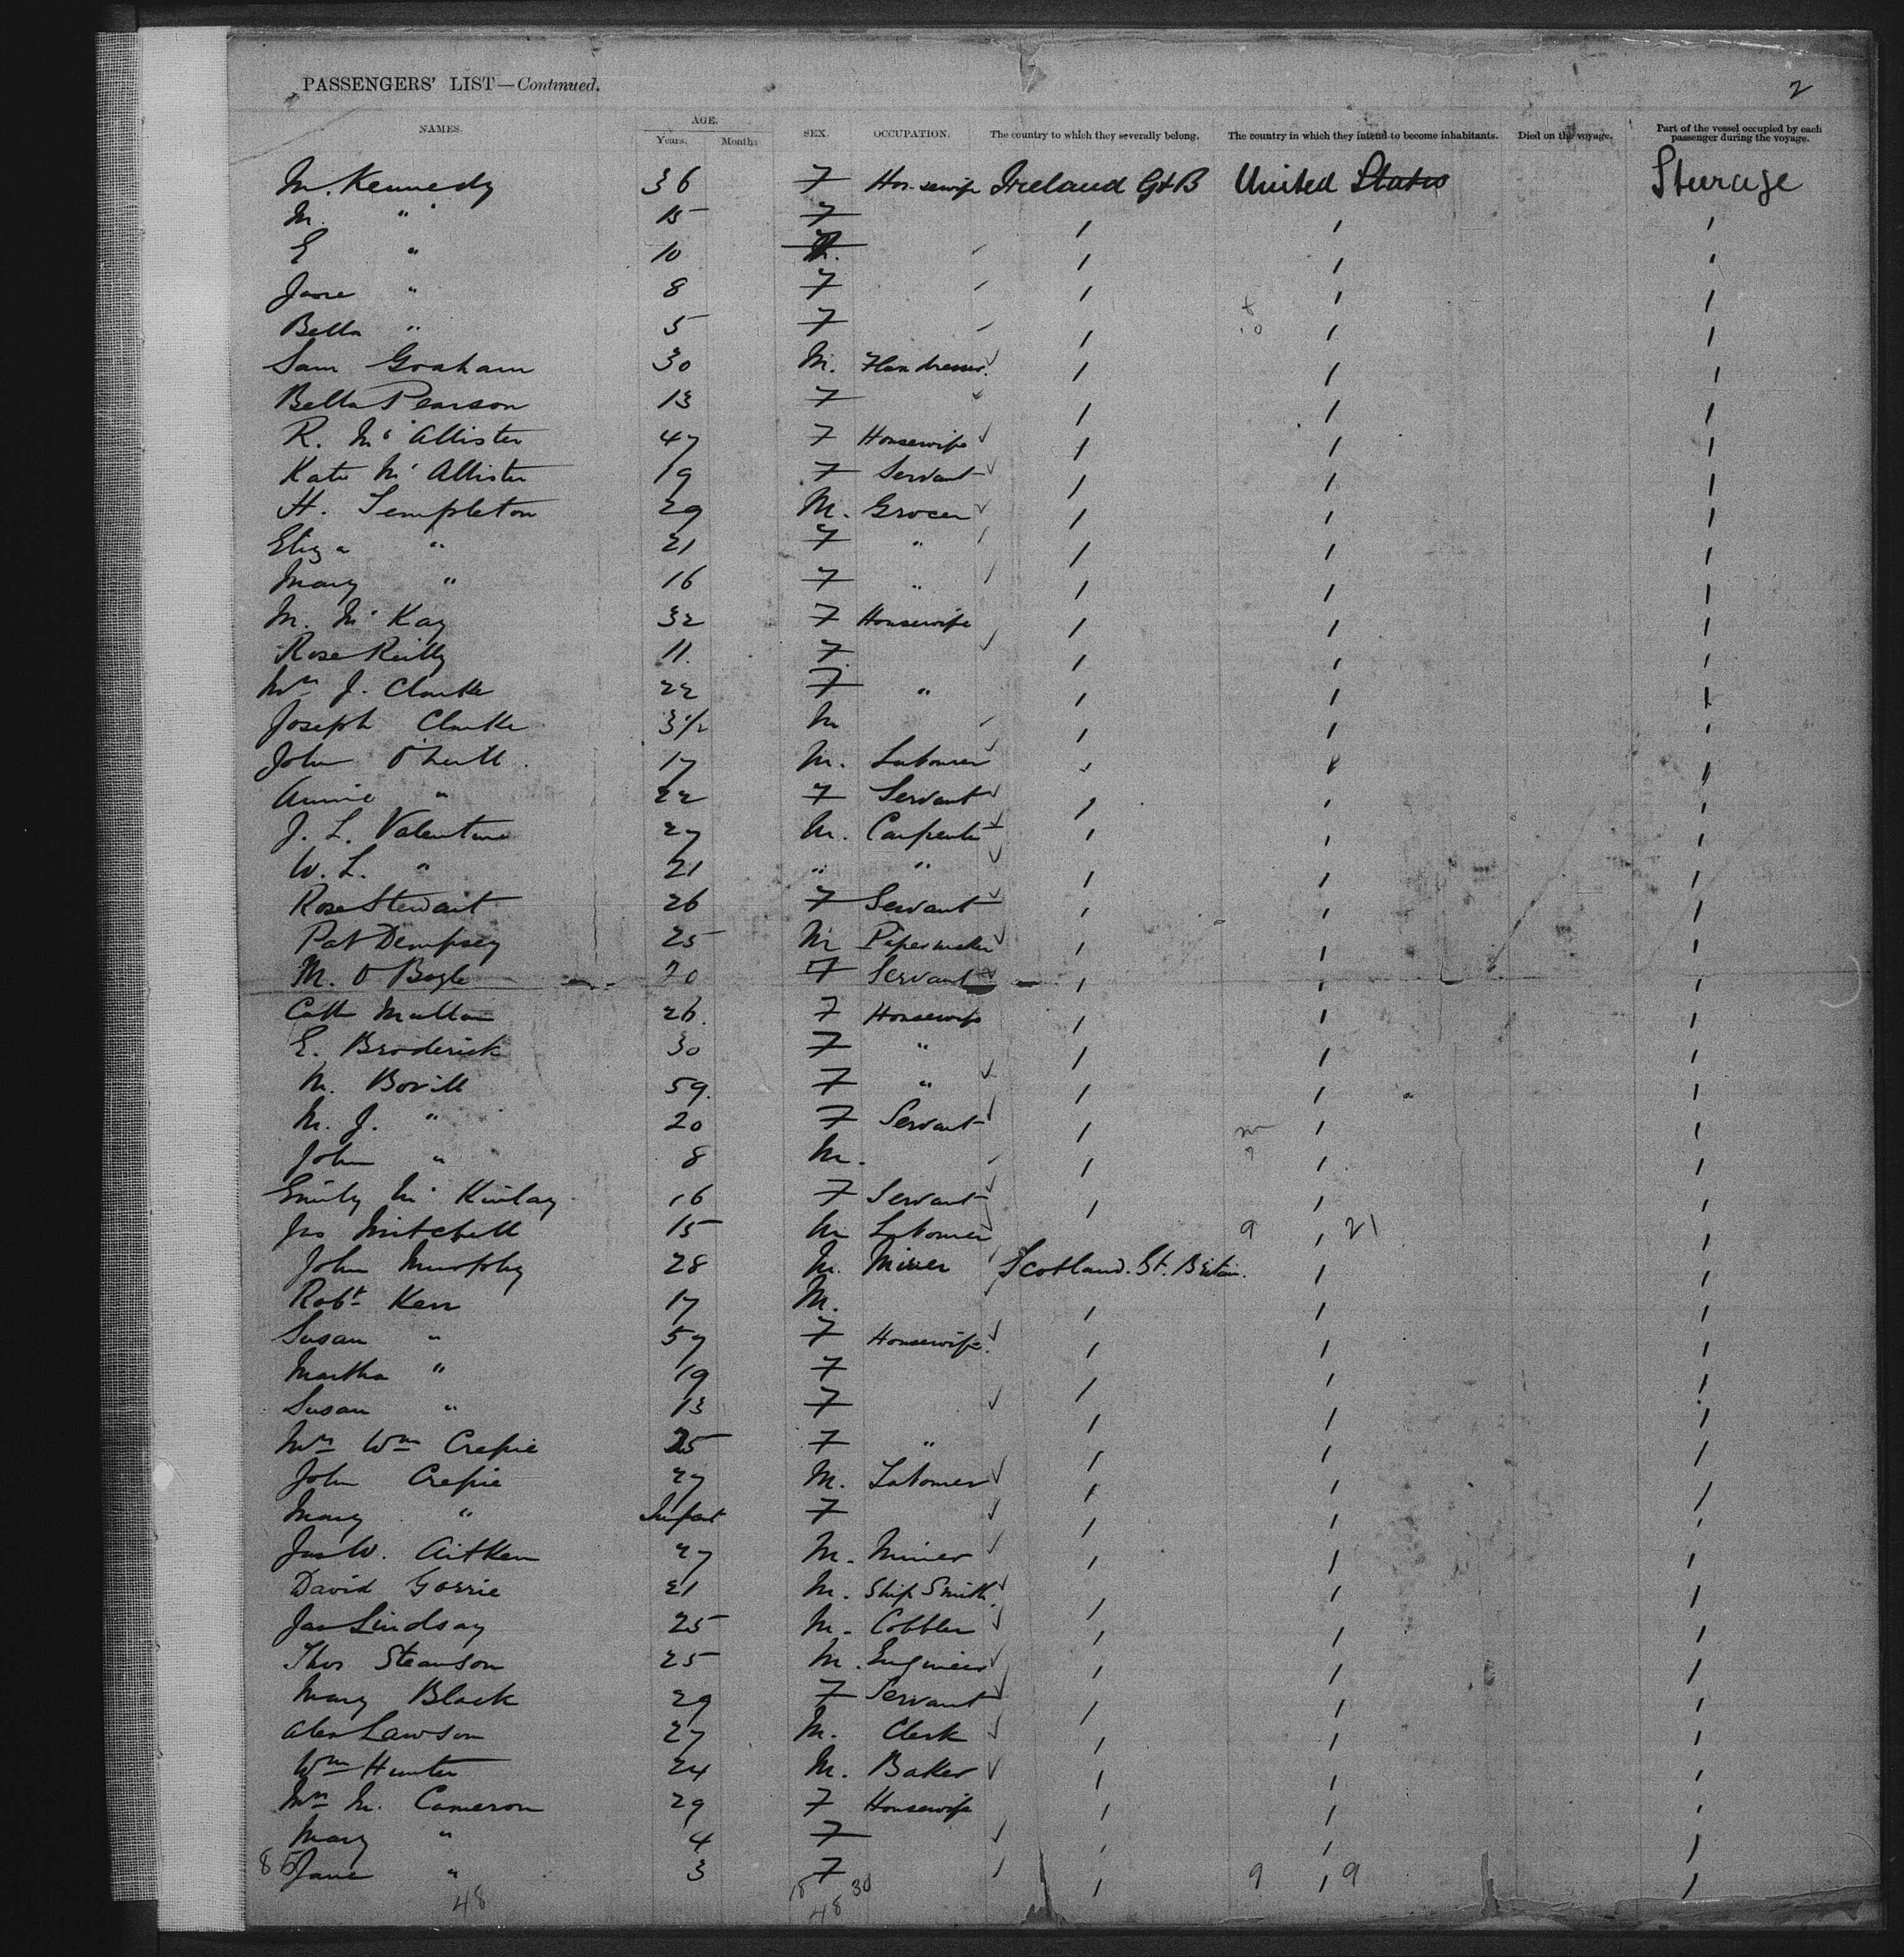 PASSENGERS' LIST—Continued. 2
NAMES. AGE. Years. Months SEX. OCCUPATION. The country to which they severally belong. The country in which they intend to become inhabitants. Died on the voyage. Part of the vessel occupied by each passenger during the voyage.
M. Kennedy 36 F Housewife Ireland Gt B United States Steerage
M. " 15 F
E " 10
Jane " 8 F
Bella " 5 F
Sam Graham 30 M. Flax dresser
Bella Pearson 13 F
R. Mc Allister 47 F Housewife
Kate Mc Allister 19 F Servant
H. Templeton 29 M. Grocer
Eliza " 21 F "
Mary " 16 F "
M. Mc Kay 32 F Housewife
Rose Reilly 11 F
Mrs J. Clarke 22 F "
Joseph Clarke 3 1/2 M
John O'Neill 17 M. Labourer
Annie " 22 F Servant
J. L. Valentine 27 M. Carpenter
W. L. " 21 " "
Rose Stewart 26 F Servant
Pat Dempsey 25 M Papermaker
M. O Boyle 20 F Servant
Cath Mullan 26 F Housewife
E. Broderick 30 F "
M. Bovill 59 F "
M. J. " 20 F Servant
John " 8 M.
Emily Mc Kinlay 16 F Servant
Jno Mitchell 15 M Labourer 9 21
John Murphy 28 M. Miner Scotland. Gt. Britain.
Robt Kerr 17 M.
Susan " 57 F Housewife
Martha " 19 F
Susan " 13 F
Mrs Wm Crepie 25 F "
John Crepie 27 M. Labourer
Mary " Infant F
Jas W. Aitken 27 M. Miner
David Gorrie 21 M. Ship Smith
Jas Lindsay 25 M. Cobbler
Thos Steanson 25 M. Engineer
Mary Black 29 F Servant
Alex Lawson 27 M. Clerk
Wm Hunter 24 M. Baker
Mrs M. Cameron 29 F Housewife
Mary " 4 F
85 Jane " 3 F 9 9
48 18 30
48